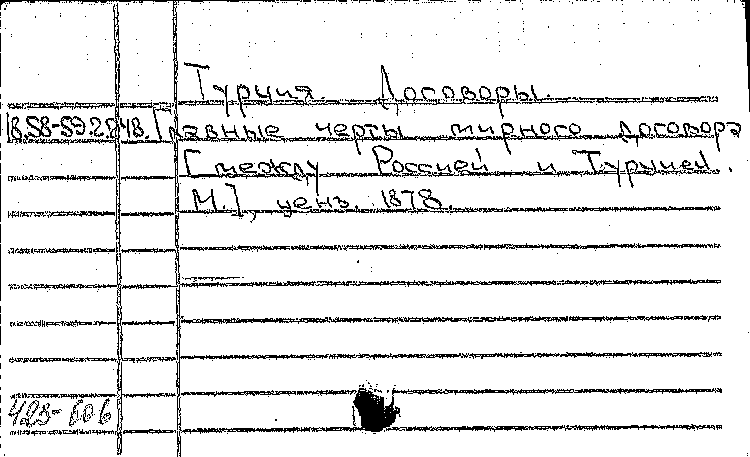 Турция. Договоры.
Главные черты мирного договора
[между Россией и Турцией.
М.], ценз. 1878.
423-606